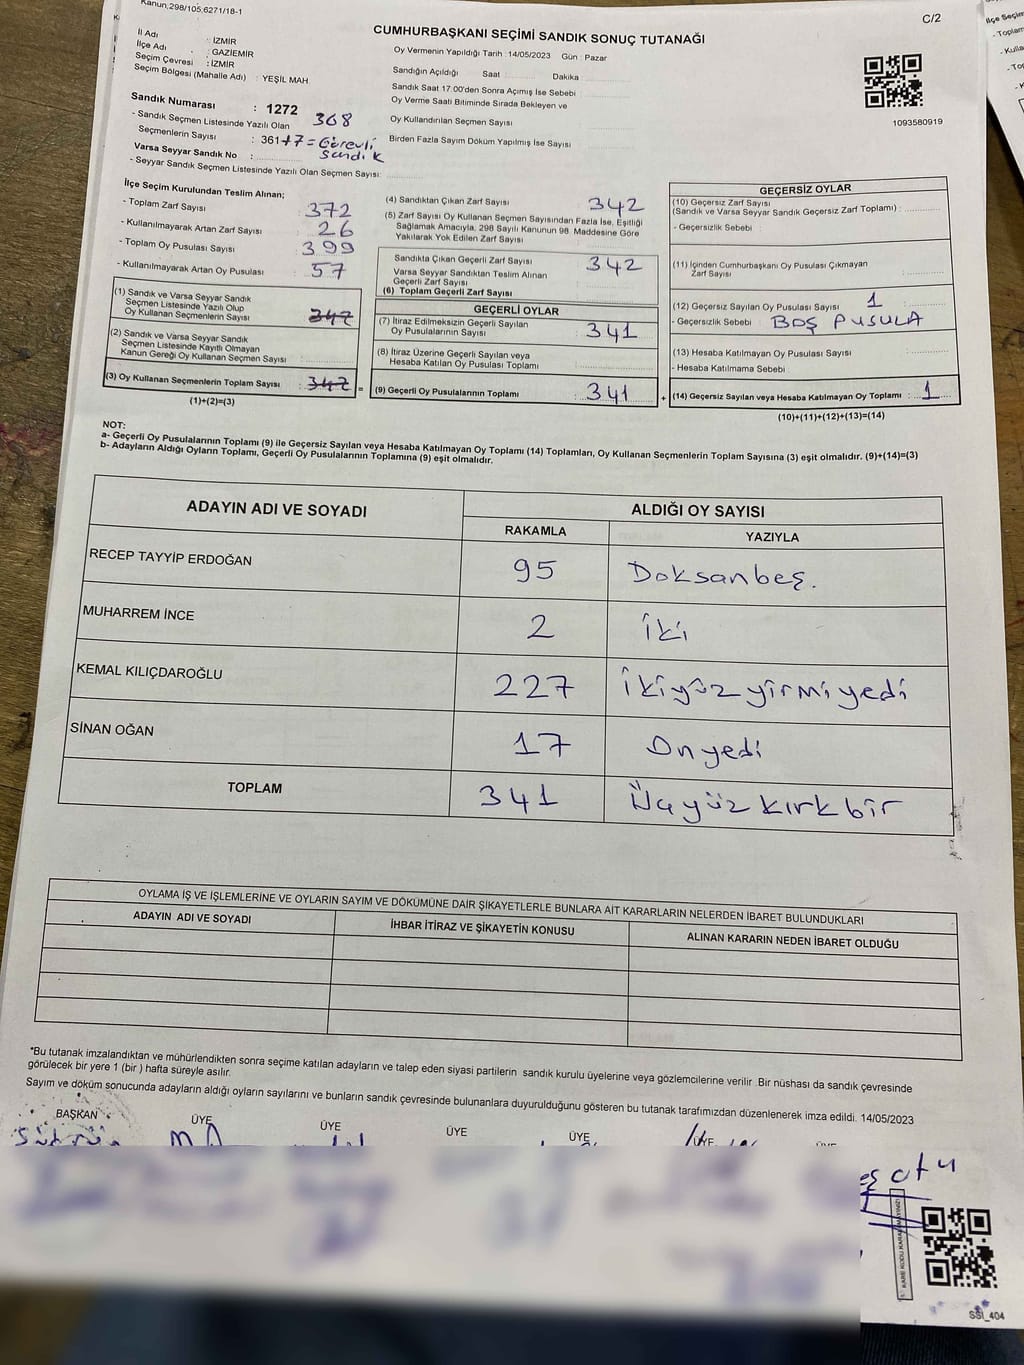 Kanun,298/105,6271/18-1
C/2
CUMHURBAŞKANI SEÇİMİ SANDIK SONUÇ TUTANAĞI
İl Adı : İZMİR
İlçe Adı : GAZİEMİR
Seçim Çevresi : İZMİR
Seçim Bölgesi (Mahalle Adı) : YEŞİL MAH
Oy Vermenin Yapıldığı Tarih : 14/05/2023 Gün : Pazar
Sandığın Açıldığı Saat Dakika
Sandık Saat 17.00'den Sonra Açımış İse Sebebi
Oy Verme Saati Bitiminde Sırada Bekleyen ve
Oy Kullandırılan Seçmen Sayısı
Birden Fazla Sayım Döküm Yapılmış İse Sayısı
1093580919
Sandık Numarası : 1272
- Sandık Seçmen Listesinde Yazılı Olan 368
Seçmenlerin Sayısı : 361+7=Görevli
sandık
Varsa Seyyar Sandık No :
- Seyyar Sandık Seçmen Listesinde Yazılı Olan Seçmen Sayısı:
İlçe Seçim Kurulundan Teslim Alınan;
- Toplam Zarf Sayısı : 372
- Kullanılmayarak Artan Zarf Sayısı : 26
- Toplam Oy Pusulası Sayısı : 399
- Kullanılmayarak Artan Oy Pusulası : 57
(1) Sandık ve Varsa Seyyar Sandık
Seçmen Listesinde Yazılı Olup
Oy Kullanan Seçmenlerin Sayısı : 342
(2) Sandık ve Varsa Seyyar Sandık
Seçmen Listesinde Kayıtlı Olmayan
Kanun Gereği Oy Kullanan Seçmen Sayısı :
(3) Oy Kullanan Seçmenlerin Toplam Sayısı : 342 =
(1)+(2)=(3)
(4) Sandıktan Çıkan Zarf Sayısı : 342
(5) Zarf Sayısı Oy Kullanan Seçmen Sayısından Fazla İse, Eşitliği
Sağlamak Amacıyla, 298 Sayılı Kanunun 98. Maddesine Göre
Yakılarak Yok Edilen Zarf Sayısı :
Sandıkta Çıkan Geçerli Zarf Sayısı : 342
Varsa Seyyar Sandıktan Teslim Alınan
Geçerli Zarf Sayısı :
(6) Toplam Geçerli Zarf Sayısı
GEÇERLİ OYLAR
(7) İtiraz Edilmeksizin Geçerli Sayılan
Oy Pusulalarının Sayısı : 341
(8) İtiraz Üzerine Geçerli Sayılan veya
Hesaba Katılan Oy Pusulası Toplamı :
(9) Geçerli Oy Pusulalarının Toplamı : 341 +
GEÇERSİZ OYLAR
(10) Geçersiz Zarf Sayısı
(Sandık ve Varsa Seyyar Sandık Geçersiz Zarf Toplamı) :
- Geçersizlik Sebebi :
(11) İçinden Cumhurbaşkanı Oy Pusulası Çıkmayan
Zarf Sayısı :
(12) Geçersiz Sayılan Oy Pusulası Sayısı : 1
- Geçersizlik Sebebi : BOŞ PUSULA
(13) Hesaba Katılmayan Oy Pusulası Sayısı :
- Hesaba Katılmama Sebebi :
(14) Geçersiz Sayılan veya Hesaba Katılmayan Oy Toplamı : 1
(10)+(11)+(12)+(13)=(14)
NOT:
a- Geçerli Oy Pusulalarının Toplamı (9) ile Geçersiz Sayılan veya Hesaba Katılmayan Oy Toplamı (14) Toplamları, Oy Kullanan Seçmenlerin Toplam Sayısına (3) eşit olmalıdır. (9)+(14)=(3)
b- Adayların Aldığı Oyların Toplamı, Geçerli Oy Pusulalarının Toplamına (9) eşit olmalıdır.
ADAYIN ADI VE SOYADI
ALDIĞI OY SAYISI
RAKAMLA YAZIYLA
RECEP TAYYİP ERDOĞAN 95 Doksanbeş.
MUHARREM İNCE 2 İki
KEMAL KILIÇDAROĞLU 227 İkiyüz yirmi yedi
SİNAN OĞAN 17 Onyedi
TOPLAM 341 Üçyüz kırk bir
OYLAMA İŞ VE İŞLEMLERİNE VE OYLARIN SAYIM VE DÖKÜMÜNE DAİR ŞİKAYETLERLE BUNLARA AİT KARARLARIN NELERDEN İBARET BULUNDUKLARI
ADAYIN ADI VE SOYADI İHBAR İTİRAZ VE ŞİKAYETİN KONUSU ALINAN KARARIN NEDEN İBARET OLDUĞU
*Bu tutanak imzalandıktan ve mühürlendikten sonra seçime katılan adayların ve talep eden siyasi partilerin sandık kurulu üyelerine veya gözlemcilerine verilir .Bir nüshası da sandık çevresinde
görülecek bir yere 1 (bir ) hafta süreyle asılır.
Sayım ve döküm sonucunda adayların aldığı oyların sayılarını ve bunların sandık çevresinde bulunanlara duyurulduğunu gösteren bu tutanak tarafımızdan düzenlenerek imza edildi. 14/05/2023
BAŞKAN ÜYE ÜYE ÜYE ÜYE ÜYE ÜYE
SSİ_404